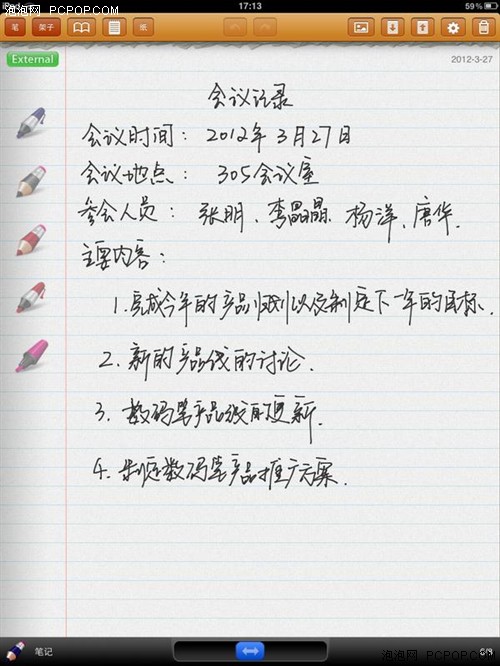 泡泡网 PCPOP.COM
iPad
17:13
59%
笔
架子
纸
External
2012-3-27
会议记录
会议时间：2012年3月27日
会议地点：305会议室
参会人员：张明、李晶晶、杨洋、唐华.
主要内容：
1.完成今年的产品归划以及制定下一年的目标.
2.新的产品线的讨论.
3.数码笔产品线的更新.
4.制定数码笔产品推广方案.
笔记
泡泡网 PCPOP.COM